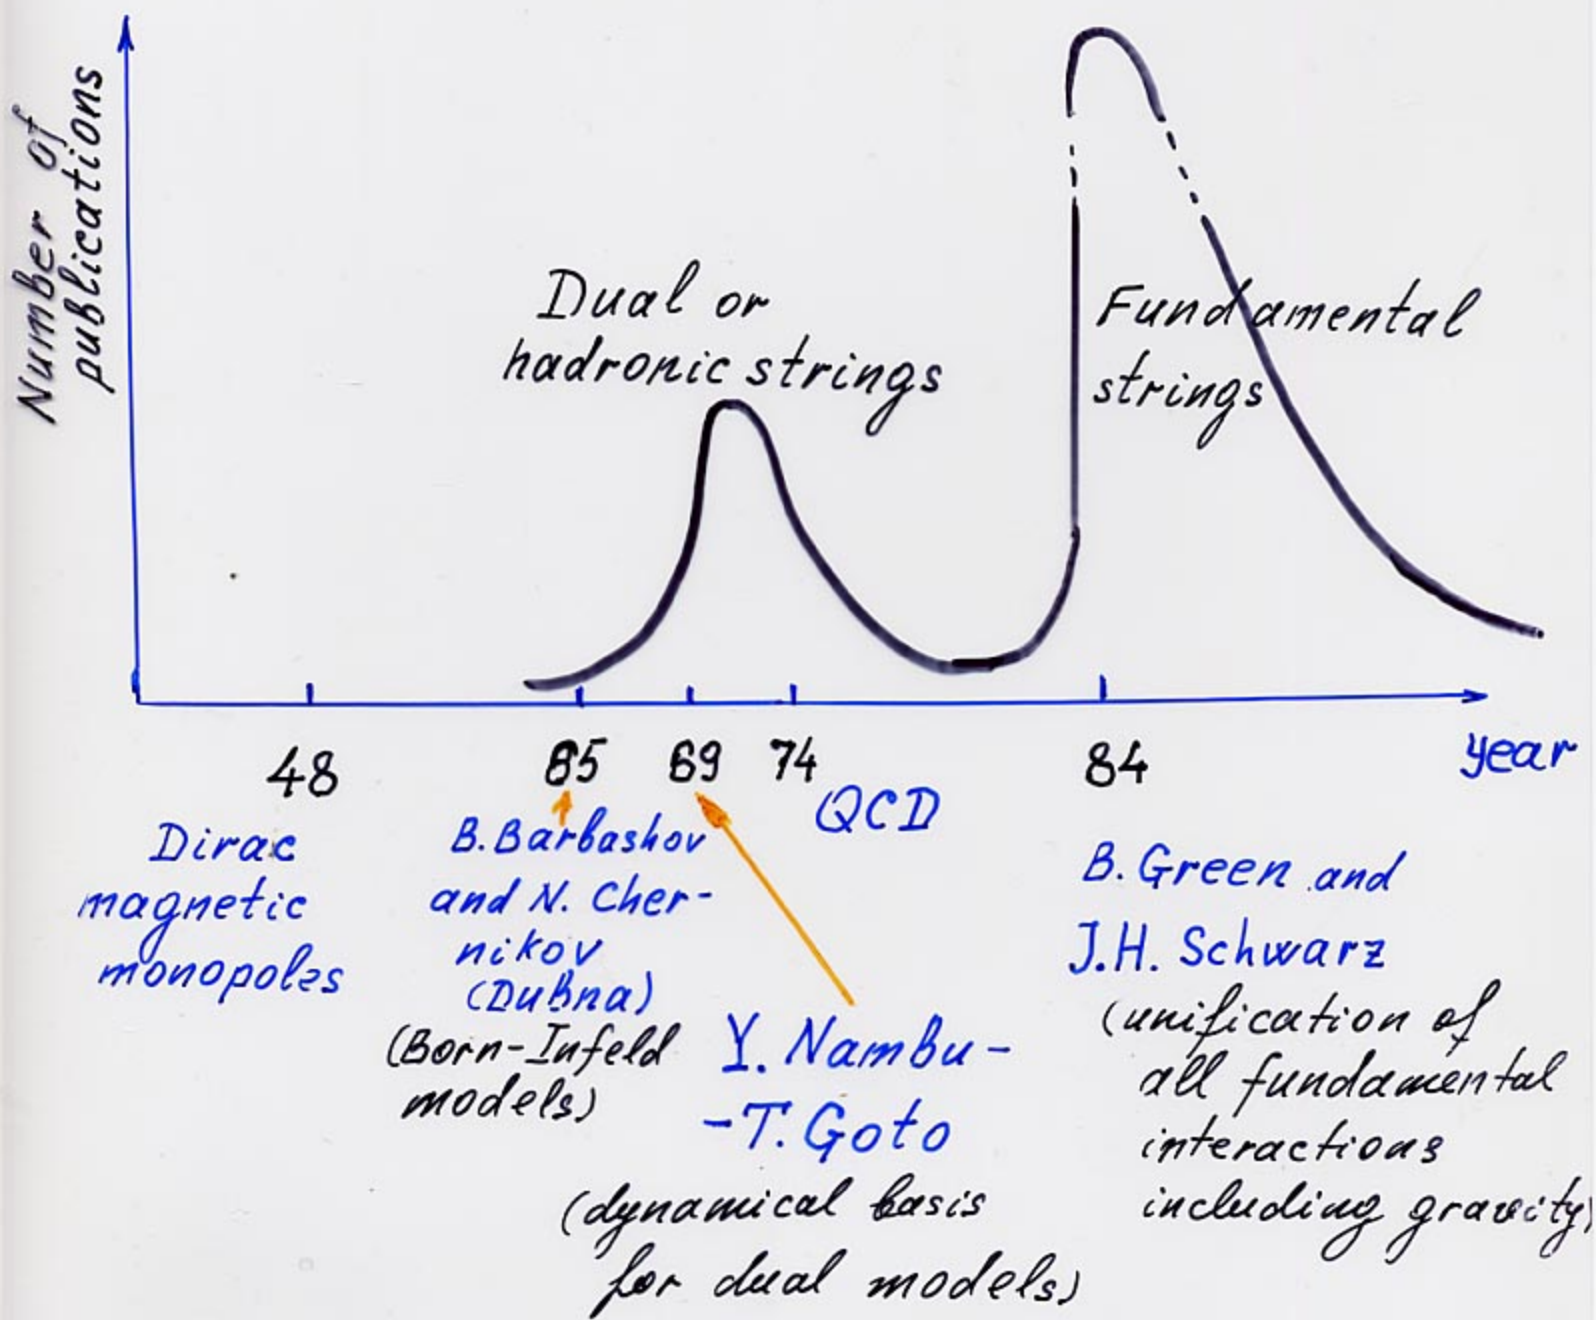 Number of
publications
Dual or
hadronic strings
Fundamental
strings
48
65
69
74
84
year
Dirac
magnetic
monopoles
B. Barbashov
and N. Cher-
nikov
(Dubna)
(Born-Infeld
models)
QCD
Y. Nambu -
- T. Goto
(dynamical basis
for dual models)
B. Green and
J.H. Schwarz
(unification of
all fundamental
interactions
including gravity)